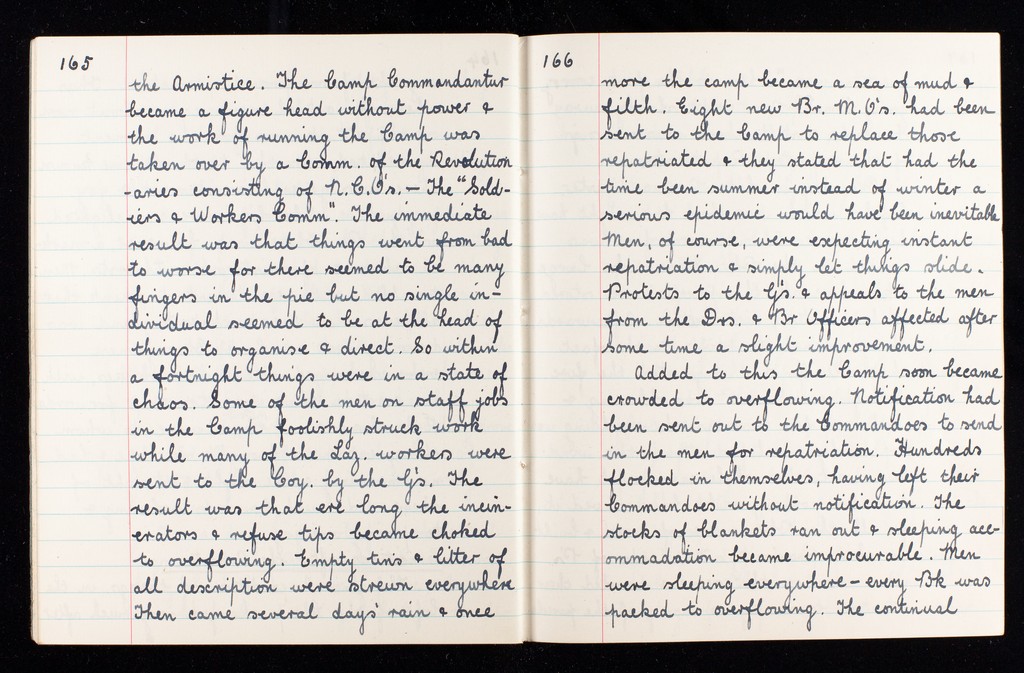 165
the Armistice. The Camp Commandantur
became a figure head without power &
the work of running the Camp was
taken over by a Comm. of the Revolution
-aries consisting of N.C.O's. — The "Sold-
iers & Workers Comm". The immediate
result was that things went from bad
to worse for there seemed to be many
fingers in the pie but no single in-
dividual seemed to be at the head of
things to organise & direct. So within
a fortnight things were in a state of
chaos. Some of the men on staff jobs
in the Camp foolishly struck work
while many of the Laz. workers were
sent to the Coy. by the G's. The
result was that ere long the incin-
erators & refuse tips became choked
to overflowing. Empty tins & litter of
all description were strewn everywhere
Then came several days' rain & once
166
more the camp became a sea of mud &
filth. Eight new Br. M.O's. had been
sent to the Camp to replace those
repatriated & they stated that had the
time been summer instead of winter a
serious epidemic would have been inevitable
Men, of course, were expecting instant
repatriation & simply let things slide.
Protests to the G's. & appeals to the men
from the Drs. & Br Officers affected after
some time a slight improvement.
Added to this the Camp soon became
crowded to overflowing. Notification had
been sent out to the Commandoes to send
in the men for repatriation. Hundreds
flocked in themselves, having left their
Commandoes without notification. The
stocks of blankets ran out & sleeping acc-
ommadation became improcurable. Men
were sleeping everywhere – every Bk was
packed to overflowing. The continual